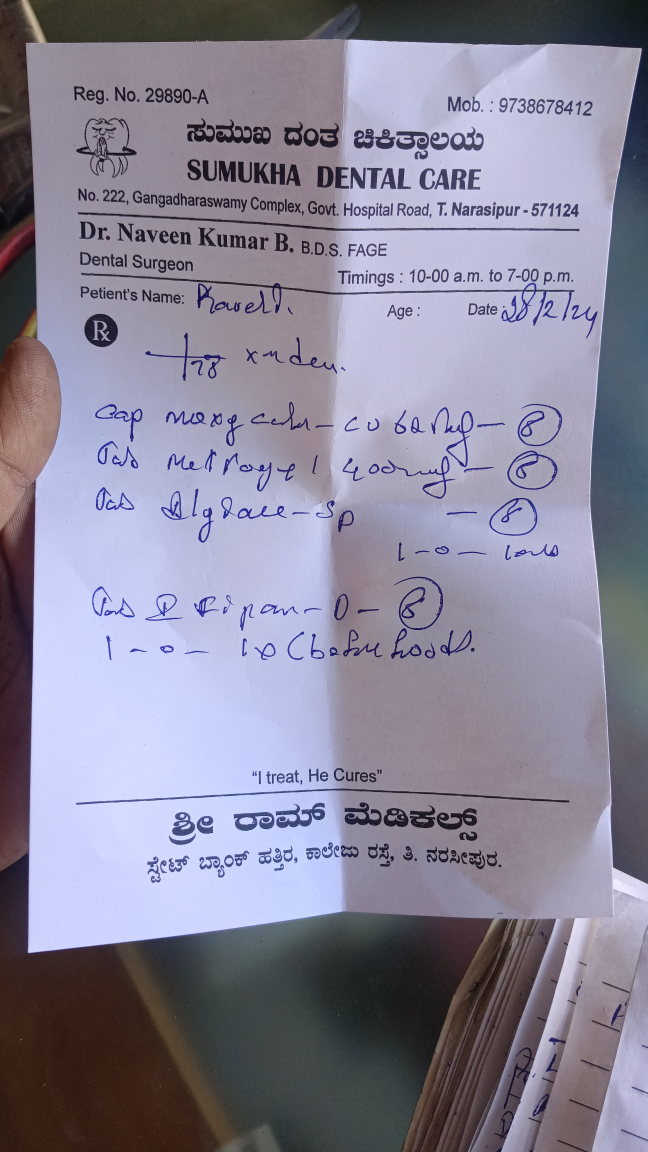 Reg. No. 29890-A
Mob. : 9738678412
ಸುಮುಖ ದಂತ ಚಿಕಿತ್ಸಾಲಯ
SUMUKHA DENTAL CARE
No. 222, Gangadharaswamy Complex, Govt. Hospital Road, T. Narasipur - 571124
Dr. Naveen Kumar B. B.D.S. FAGE
Dental Surgeon
Timings : 10-00 a.m. to 7-00 p.m.
Petient's Name:
Age :
Date : 28/2/24
Rx
78
Cap - 8
Tab Metrogyl 400mg - 8
Tab - SP - 8
1-0-1
Tab - D - 8
1-0-1 (before foods.
"I treat, He Cures"
ಶ್ರೀ ರಾಮ್ ಮೆಡಿಕಲ್ಸ್
ಸ್ಟೇಟ್ ಬ್ಯಾಂಕ್ ಹತ್ತಿರ, ಕಾಲೇಜು ರಸ್ತೆ, ತಿ. ನರಸೀಪುರ.